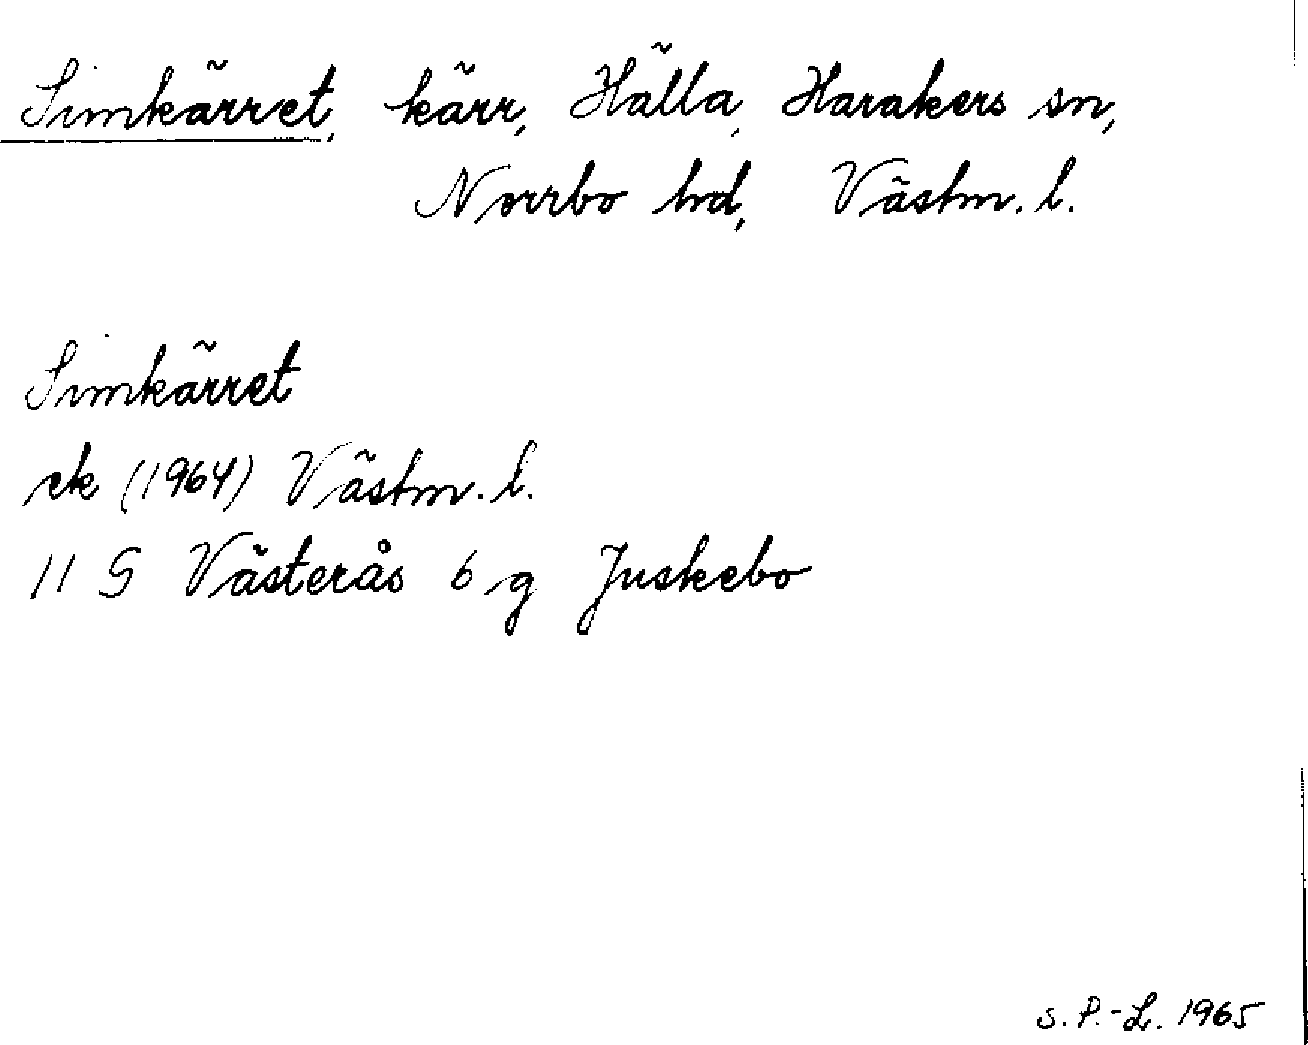 Simkärret, kärr, Hälla, Harakers sn,
Norrbo hd, Västm. l.
Simkärret
ek (1964) Västm. l.
11 G Västerås 6 g Juskebo
S. P.-L. 1965